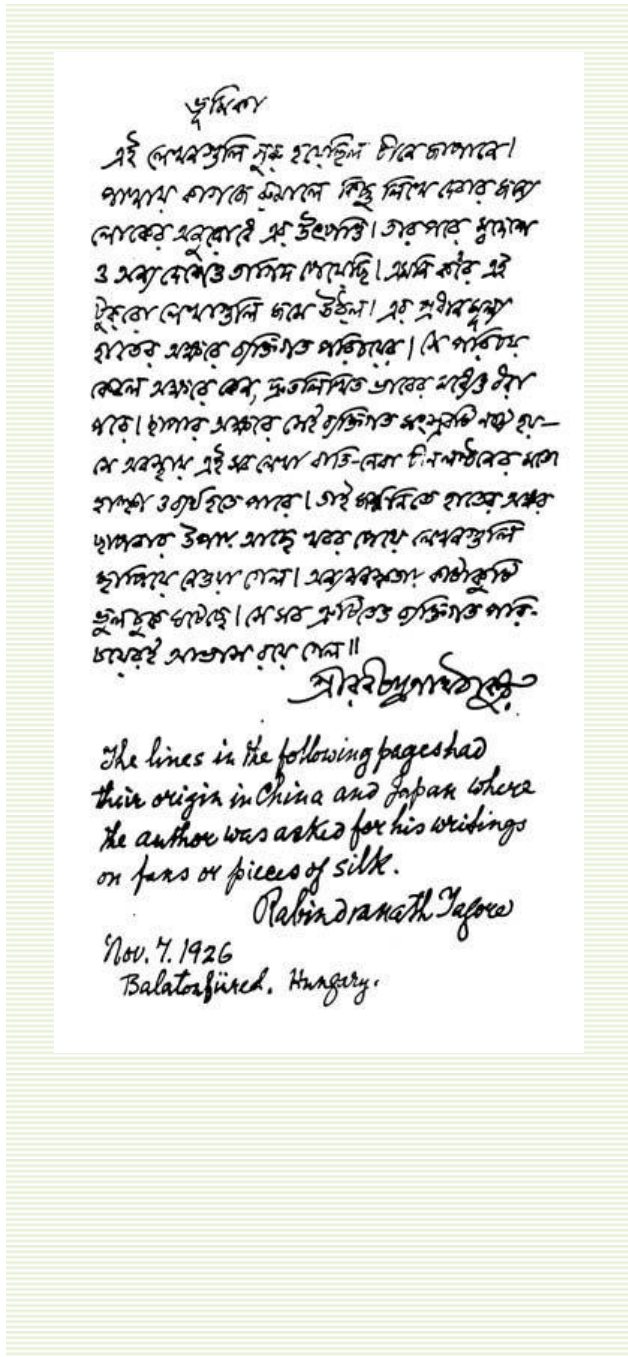 ভূমিকা
এই লেখনগুলি সুরু হয়েছিল চীনে জাপানে।
পাখায় কাগজে রুমালে কিছু লিখে দেবার জন্যে
লোকের অনুরোধে এর উৎপত্তি। তারপরে স্বদেশে
ও অন্য দেশেও তাগিদ পেয়েছি। এমনি করে এই
টুকরো লেখাগুলি জমে উঠ্‌ল। এর প্রধান মূল্য
হাতের অক্ষরে ব্যক্তিগত পরিচয়ের। সে পরিচয়
কেবল অক্ষরে কেন, দ্রুতলিখিত ভাবের মধ্যেও ধরা
পড়ে। ছাপার অক্ষরে সেই ব্যক্তিগত সংস্রবটি নষ্ট হয়—
সে অবস্থায় এই সব লেখা বাতি-নেবা চীন লণ্ঠনের মতো
হাল্কা ও ব্যর্থ হতে পারে। তাই জর্ম্মনিতে হাতের অক্ষর
ছাপবার উপায় আছে খবর পেয়ে লেখনগুলি
ছাপিয়ে নেওয়া গেল। অন্যমনস্কতায় কাটাকুটি
ভুলচুক ঘটেছে। সে সব ত্রুটিতেও ব্যক্তিগত পরি-
চয়েরই আভাস রয়ে গেল॥
শ্রীরবীন্দ্রনাথ ঠাকুর
The lines in the following pages had
their origin in China and Japan where
the author was asked for his writings
on fans or pieces of silk.
Rabindranath Tagore
Nov. 7. 1926
Balatonfüred. Hungary.